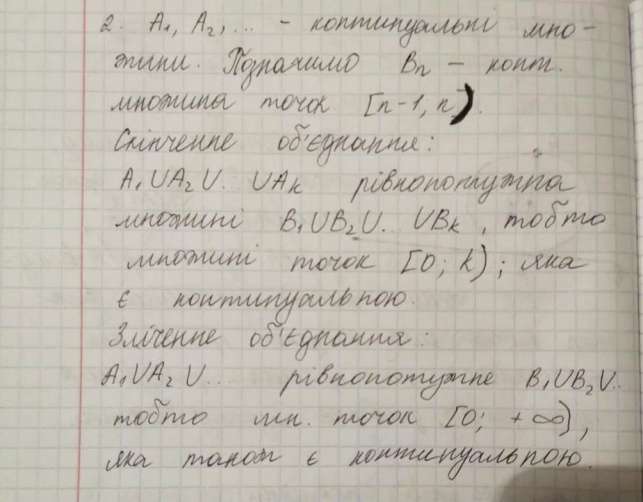 2. A₁, A₂, ... - континуальні мно-
жини. Позначимо Bₙ - конт.
множина точок [n-1, n).
Скінченне об'єднання:
A₁UA₂U... UAₖ рівнопотужна
множині B₁UB₂U... UBₖ, тобто
множині точок [0; k); яка
є континуальною.
Зліченне об'єднання:
A₁UA₂U... рівнопотужне B₁UB₂U..
тобто мн. точок [0; +∞),
яка також є континуальною.